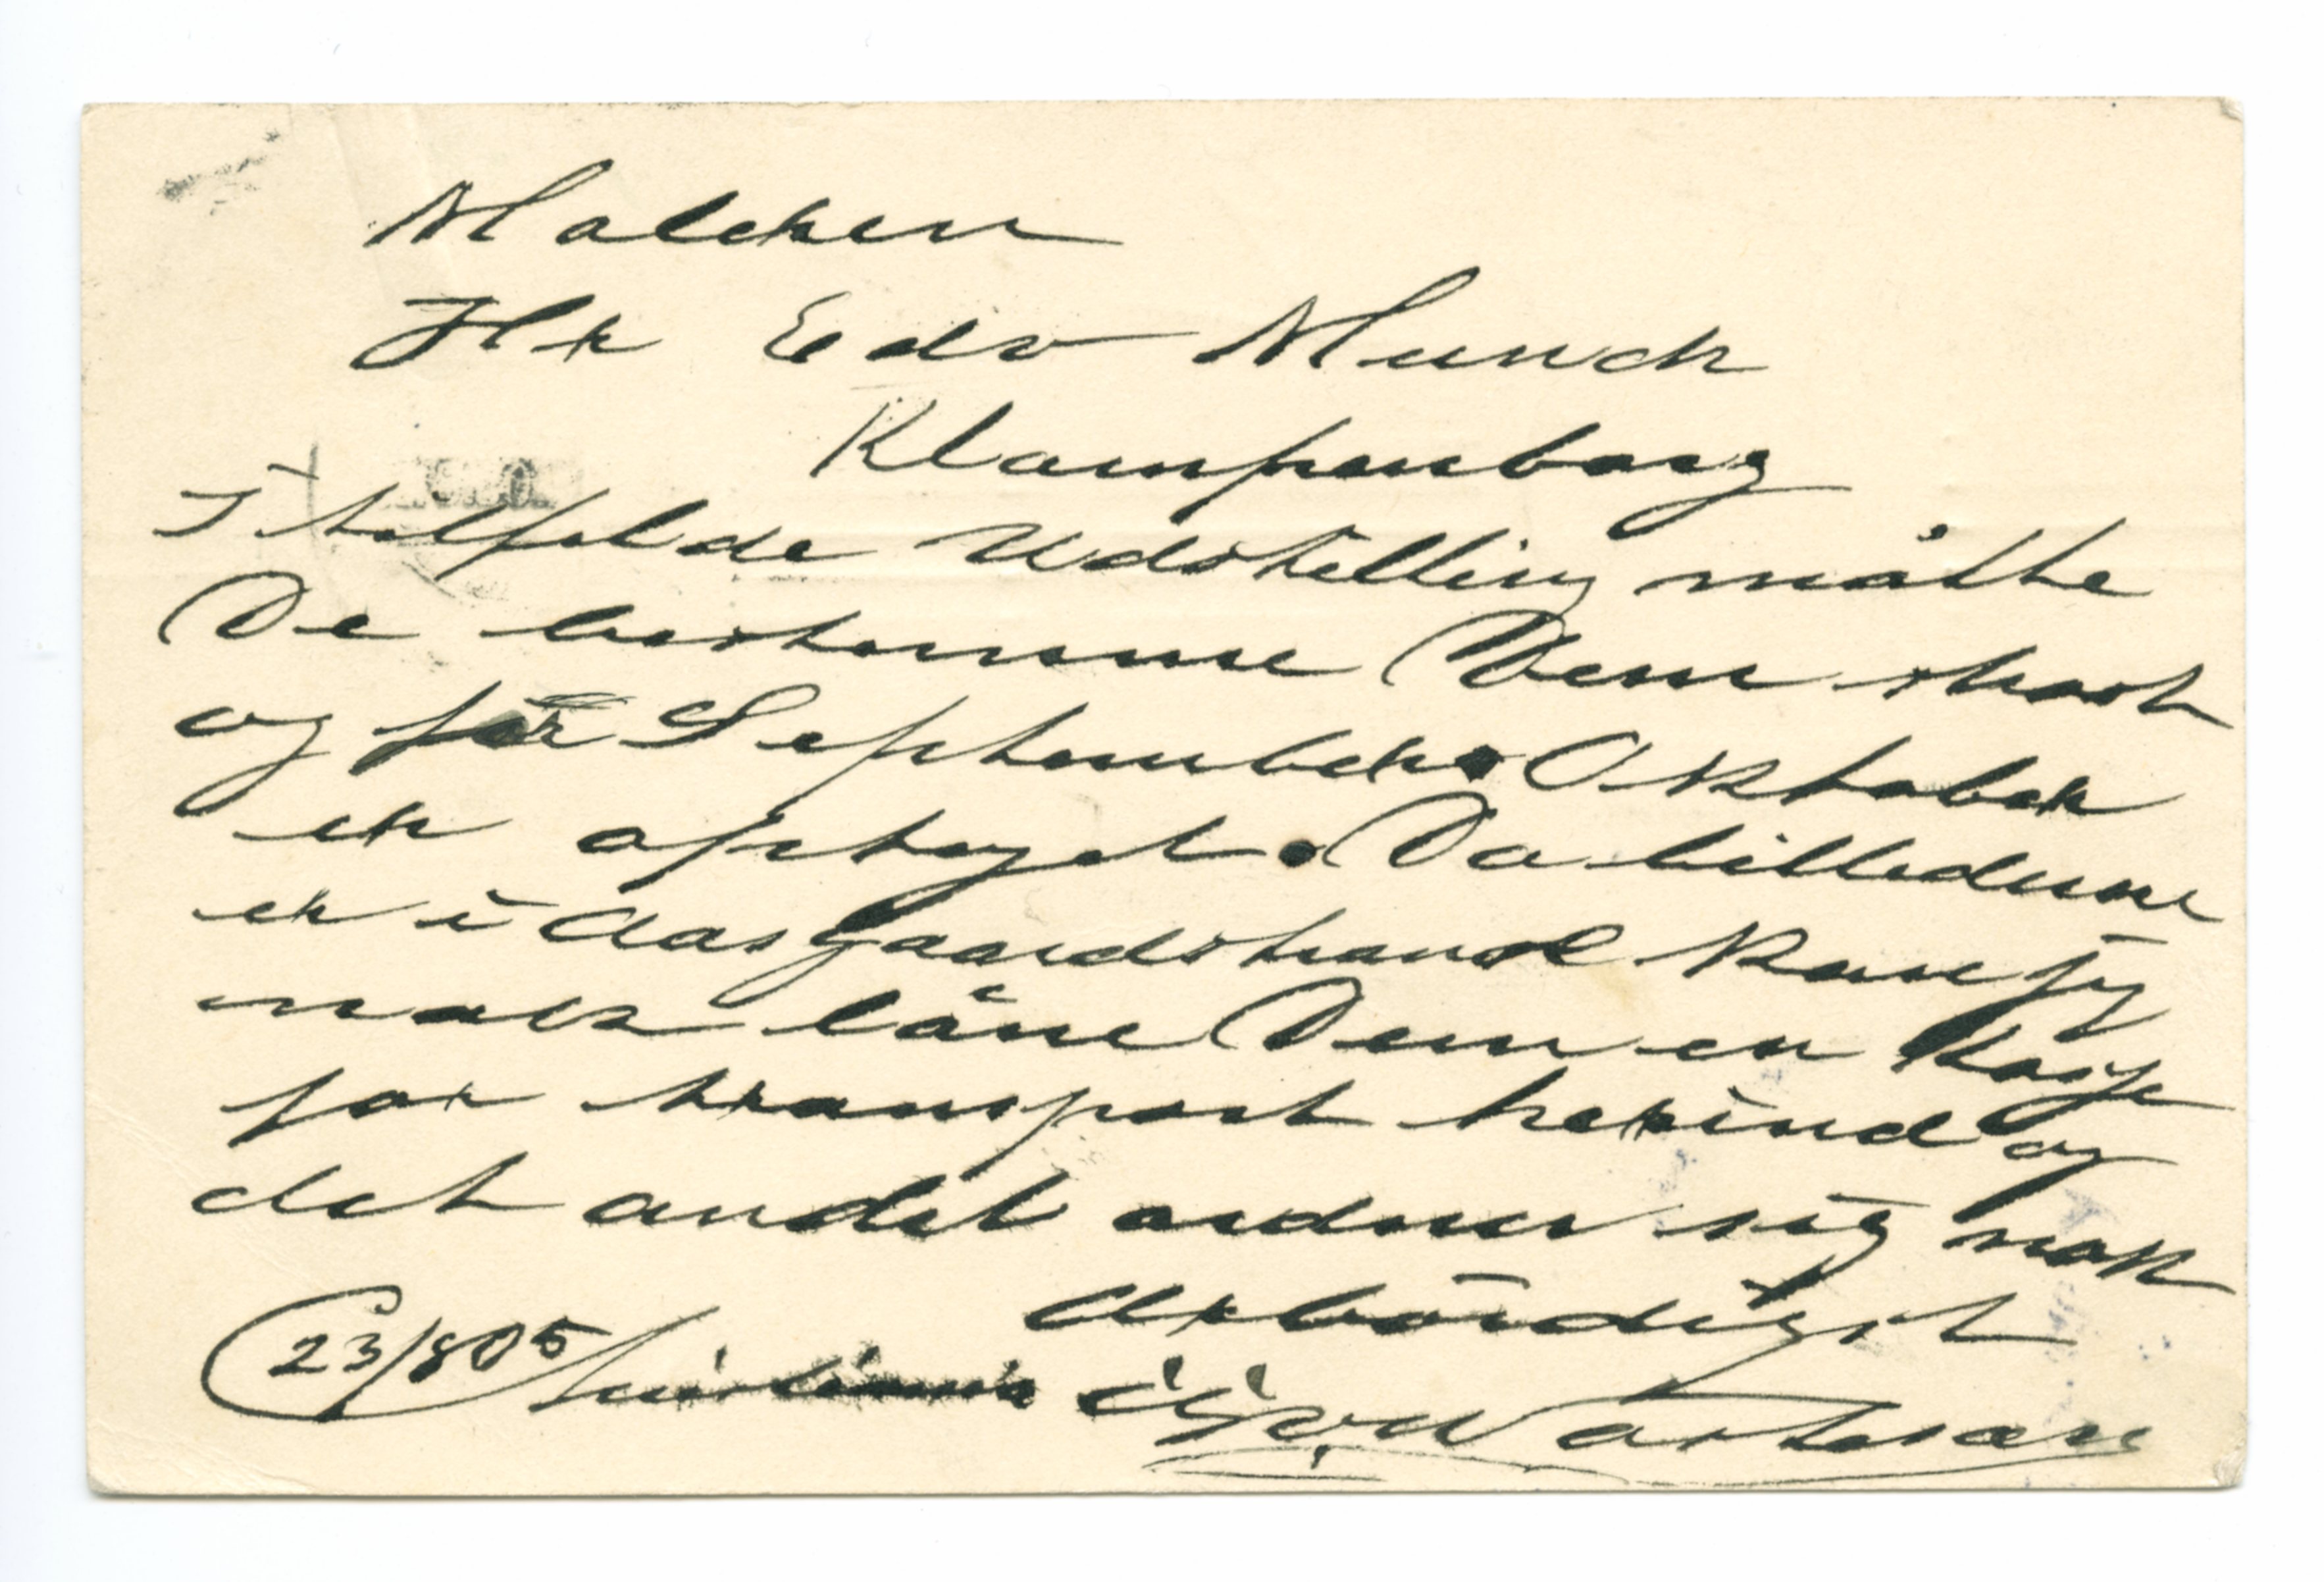 Maleren
Hr Edv Munch
Klampenborg
I tilfelde Udstilling måtte
De bestemme Dem strax
og før September. Oktober
er optaget. Da billederne
er i Aasgaardstrand kan jeg
maks låne Dem en Kasse
for transport herind og
det andet ordner sig nok
Ærbödigst
23/8 05 Kristiania Wartmann